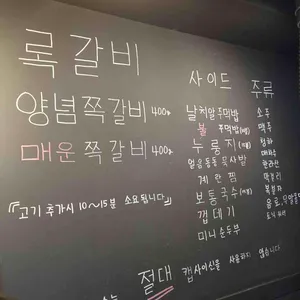 록갈비
양념쪽갈비 400g
매운쪽갈비 400g
『고기 추가시 10~15분 소요됩니다』
사이드
날치알주먹밥
불 주먹밥(매운)
누룽지(매운)
얼음동동묵사발
계란찜
보통국수(매운)
껍데기
미니순두부
주류
소주
맥주
청하
매화수
한라산
막걸리
복분자
음료
절대 캡사이신을 사용하지 않습니다